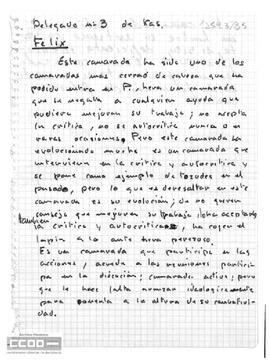 Delegado nº 3 de Kas.
Felix
Este camarada ha sido uno de los
camaradas mas cerrao de cabeza que ha
podido entrar en P, hera un camarada
que se negaba a cualquier ayuda que
pudiera mejorar su trabajo; no acepta
la critica, no se autocritica nunca o en
raras ocasiones. Pero este camarada ha
evolucionando mucho es un camarada que
interviene en la critica y autocritica y
se pone como ejemplo de tozudes en el
pasado, pero lo que es de resaltar en este
camarada es su evolución; de no querer
consejo que mejorara su trabajo ha aceptado
tambien
la critica y autocritica, ha cogido el
lapiz a lo ante hera perezoso.
Es un camarada que participa en las
acciones, acude a las reuniones participa
en la discución; camarada activo; pero
que le hace falta avanzar ideologicamente
para a la altura de su combatividad.
CCOO